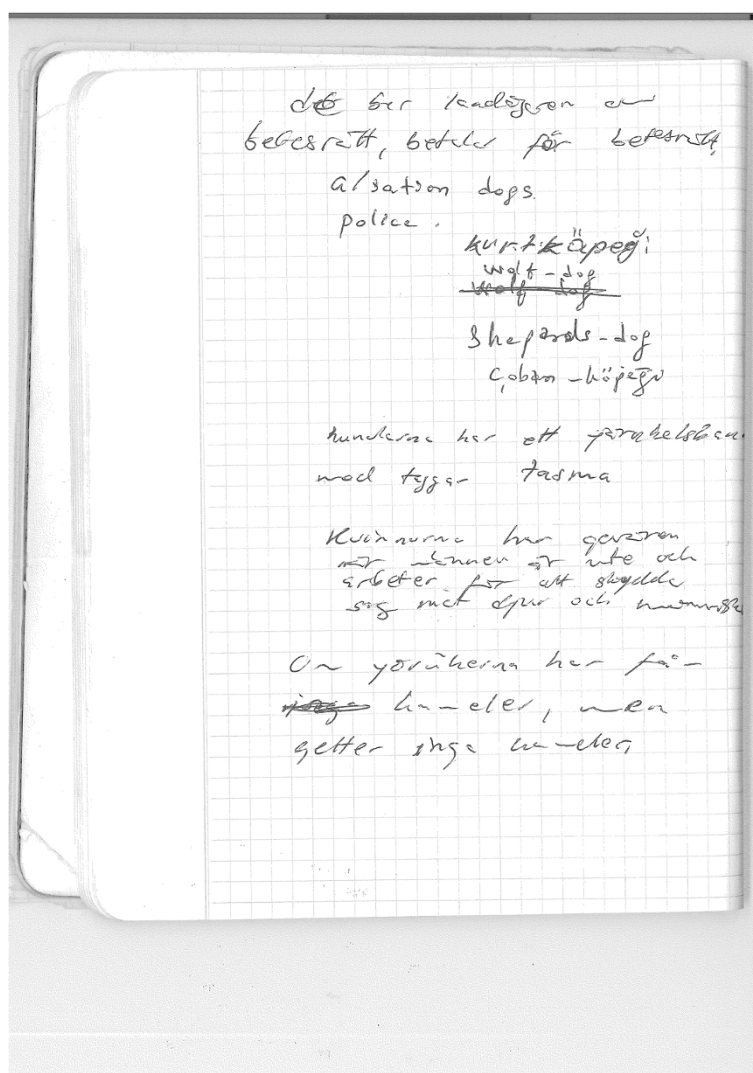 de ber landägaren om
betesrätt, betalar för betesrätt,
alsation dogs.
police.
kurt köpeği
wolf-dog
wolf dog
Shepards-dog
Çoban-köpeği
hundarna har ett
med taggar tasma
Kvinnorna har gevären
när männen är ute och
arbeter för att skydda
sig mot djur och
Om yörükerna har får
inga kameler, men
getter inga kameler,